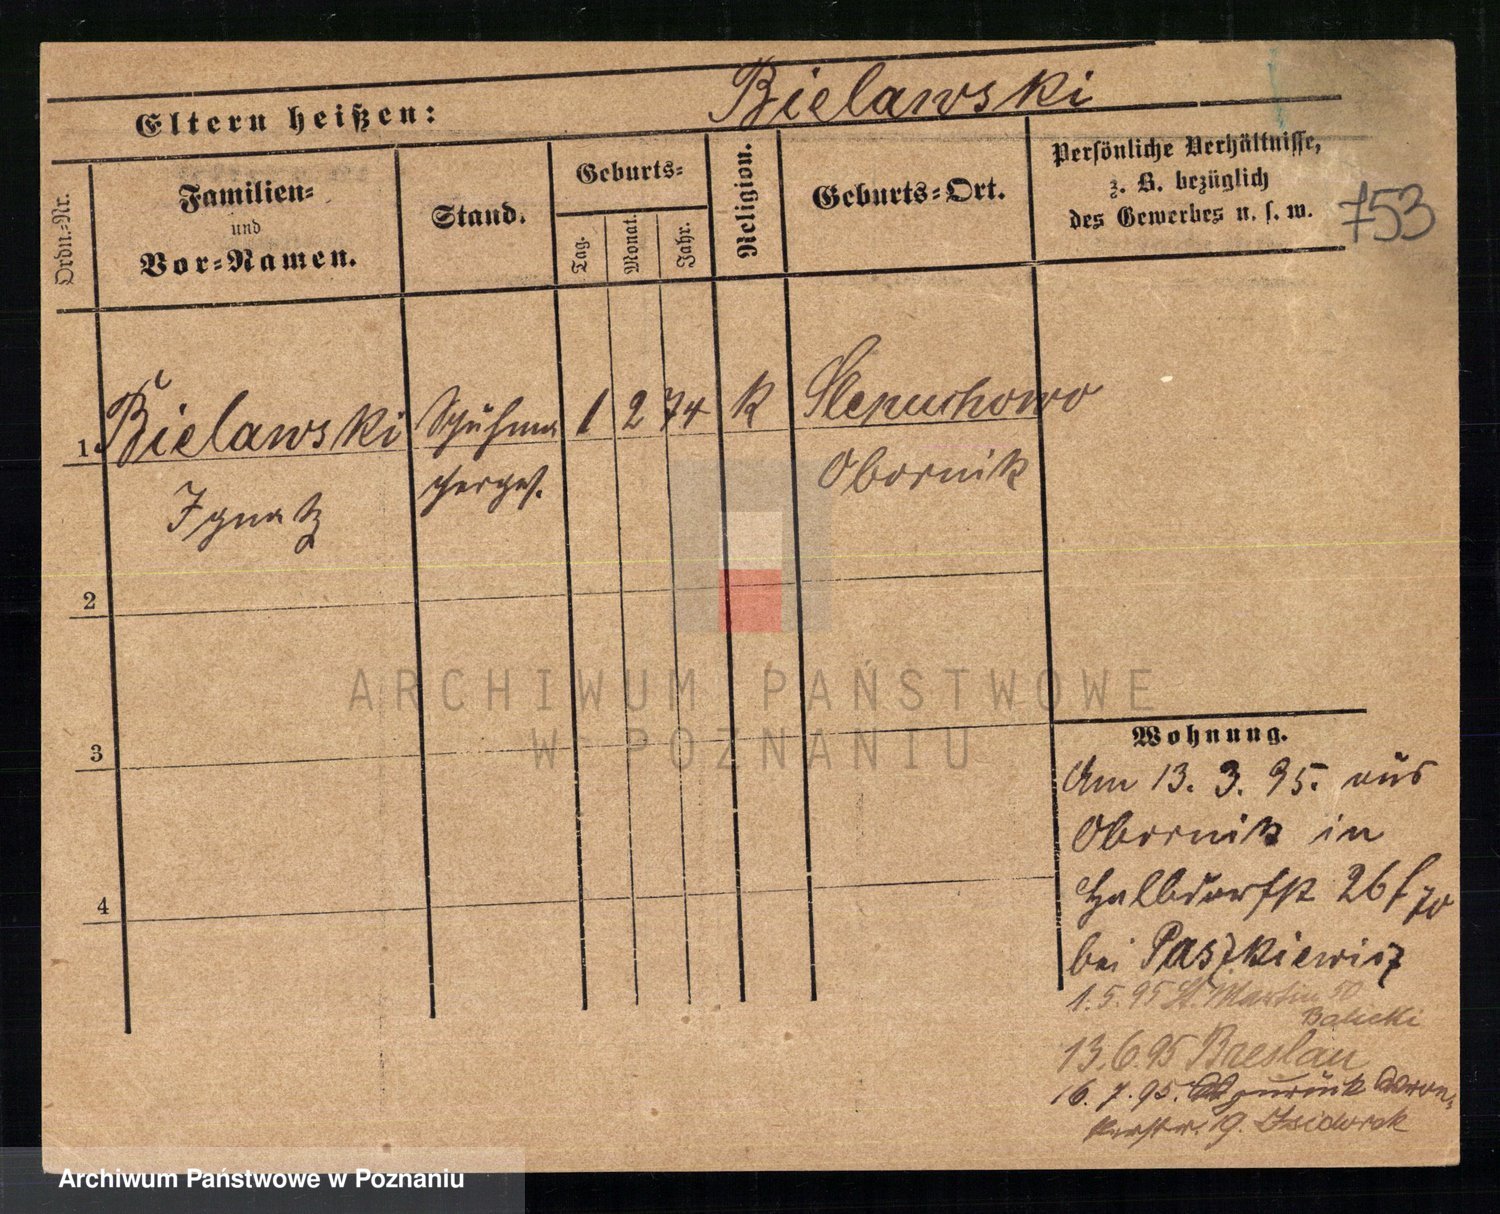 Bielawski
Eltern heißen:
Ordn.-Nr.
Familien-
und
Vor-Namen.
Stand.
Geburts-
Tag.
Monat.
Jahr.
Religion.
Geburts-Ort.
Persönliche Verhältnisse,
z. B. bezüglich
des Gewerbes u. s. w.
753
1 Bielawski Schuhma 1 2 74 k Slepuchowo
Ignatz cherges. Obornik
2
3
4
Wohnung.
Am 13. 3. 95. aus
Obornik in
Halbdorfst 26
bei Paszkiewicz
1. 5. 95 St. Martin 50
Balicki
13. 6. 95 Breslau
16. 7. 95. zurück Wron-
kerstr. 19. Isidorek
ARCHIWUM PAŃSTWOWE
W POZNANIU
Archiwum Państwowe w Poznaniu